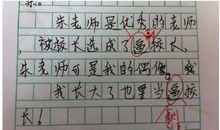 朱老师是优秀的老师
被校长选成了副校长，
朱老师可是我的偶像，我
我长大了也要当副校
长。